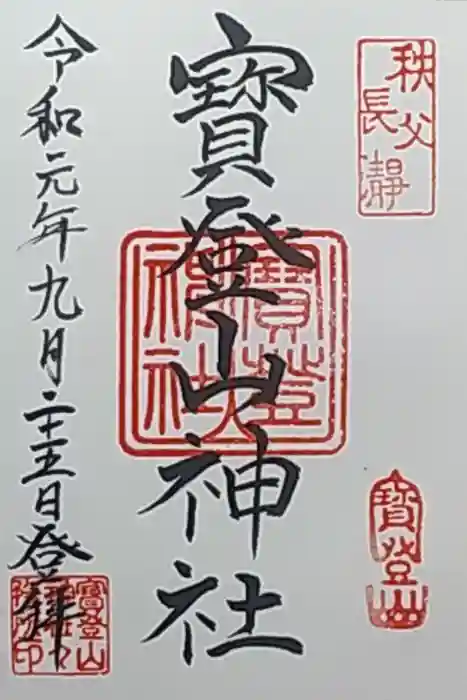 秩父
長瀞
寶登山
寶登山神社
寶登山神社
令和元年九月二十五日登拝
寶登山